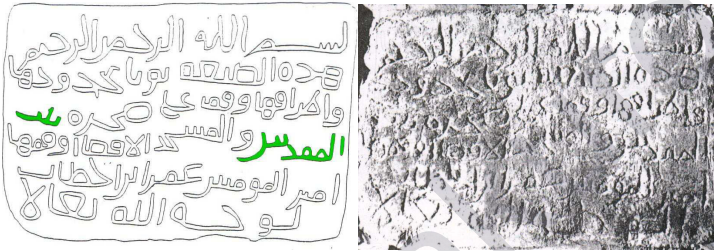 بسم الله الرحمن الرحيم
هذه الضيعه نوبا بحدودها
واطرافها وقف على صخره بيت
المقدس والمسجد الاقصا اوقفها
امير المومنين عمر ابن الخطاب
لوجه الله تعالا